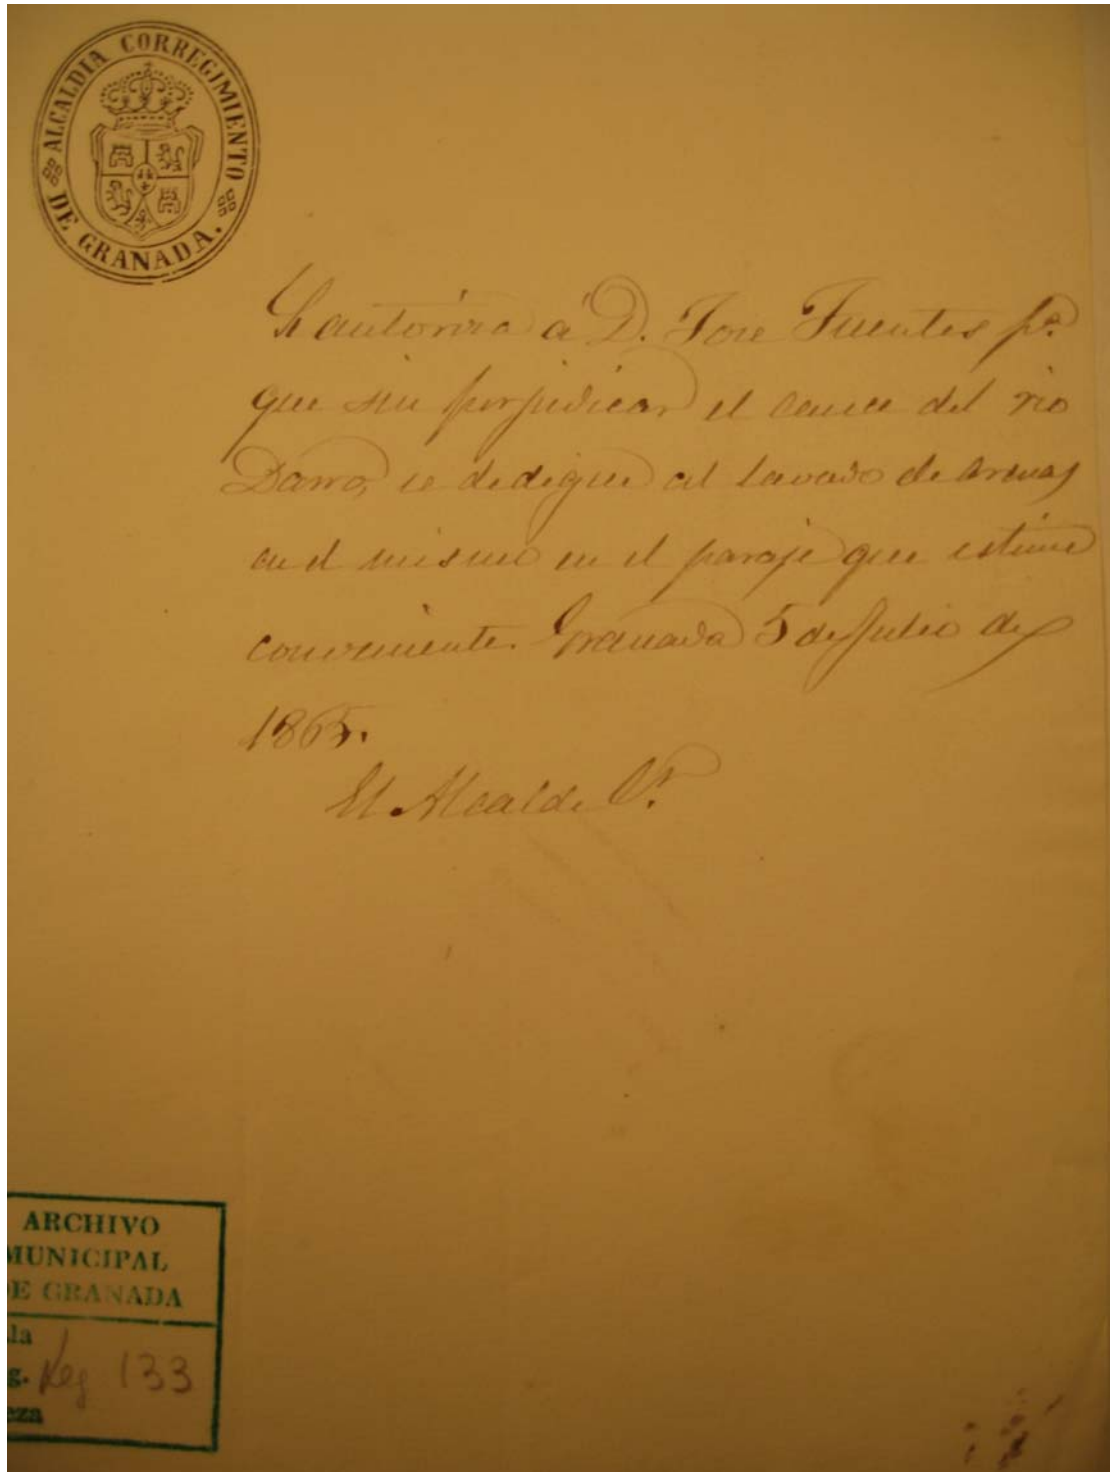 ALCALDIA CORREGIMIENTO
DE GRANADA.
Se autoriza á D. Jose Fuentes pª.
que sin perjudicar el cauce del rio
Darro, se dedique al lavado de arenas
en el mismo en el paraje que estime
conveniente. Granada 5 de Julio de
1865.
El Alcalde Cr.
ARCHIVO
MUNICIPAL
DE GRANADA
la
g. Leg 133
eza